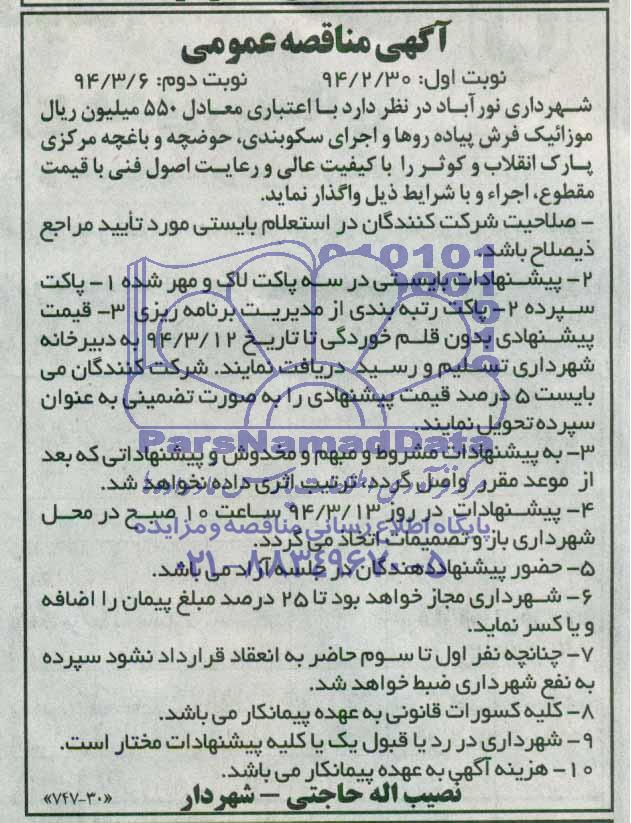 آگهی مناقصه عمومی
نوبت اول: ۹۴/۲/۳۰ نوبت دوم: ۹۴/۳/۶
شهرداری نورآباد در نظر دارد با اعتباری معادل ۵۵۰ میلیون ریال
موزائیک فرش پیاده روها و اجرای سکوبندی، حوضچه و باغچه مرکزی
پارک انقلاب و کوثر را با کیفیت عالی و رعایت اصول فنی با قیمت
مقطوع، اجراء و با شرایط ذیل واگذار نماید.
- صلاحیت شرکت کنندگان در استعلام بایستی مورد تأیید مراجع
ذیصلاح باشد.
۲- پیشنهادات بایستی در سه پاکت لاک و مهر شده ۱- پاکت
سپرده ۲- پاکت رتبه بندی از مدیریت برنامه ریزی ۳- قیمت
پیشنهادی بدون قلم خوردگی تا تاریخ ۹۴/۳/۱۲ به دبیرخانه
شهرداری تسلیم و رسید دریافت نمایند. شرکت کنندگان می
بایست ۵ درصد قیمت پیشنهادی را به صورت تضمینی به عنوان
سپرده تحویل نمایند.
ParsNamadData
۳- به پیشنهادات مشروط و مبهم و مخدوش و پیشنهاداتی که بعد
از موعد مقرر واصل گردد، ترتیب اثری داده نخواهد شد.
۴- پیشنهادات در روز ۹۴/۳/۱۳ ساعت ۱۰ صبح در محل
پایگاه اطلاع رسانی مناقصه و مزایده
شهرداری باز و تصمیمات اتخاذ می گردد.
۰۲۱-۸۸۳۴۹۶۷۰-۵
۵- حضور پیشنهاددهندگان در جلسه آزاد می باشد.
۶- شهرداری مجاز خواهد بود تا ۲۵ درصد مبلغ پیمان را اضافه
و یا کسر نماید.
۷- چنانچه نفر اول تا سوم حاضر به انعقاد قرارداد نشود سپرده
به نفع شهرداری ضبط خواهد شد.
۸- کلیه کسورات قانونی به عهده پیمانکار می باشد.
۹- شهرداری در رد یا قبول یک یا کلیه پیشنهادات مختار است.
۱۰- هزینه آگهی به عهده پیمانکار می باشد.
نصیب اله حاجتی – شهردار
«۷۴۷-۳۰»